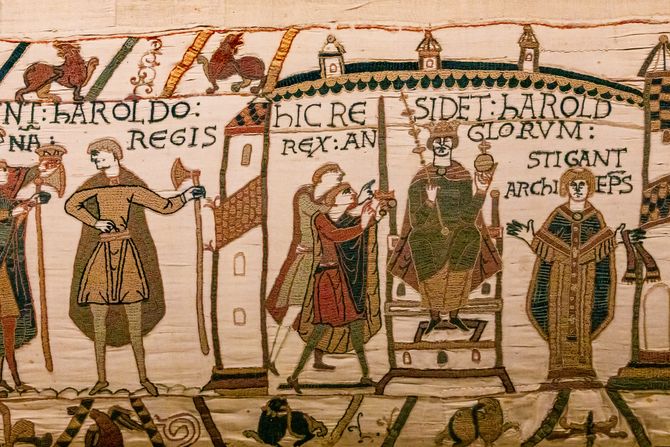 NT: hAROLDO:
NĀ: REGIS
hIC RE SIDET: hAROLD
REX: AN GLORVM:
STIGANT
ARCHI EP̄S